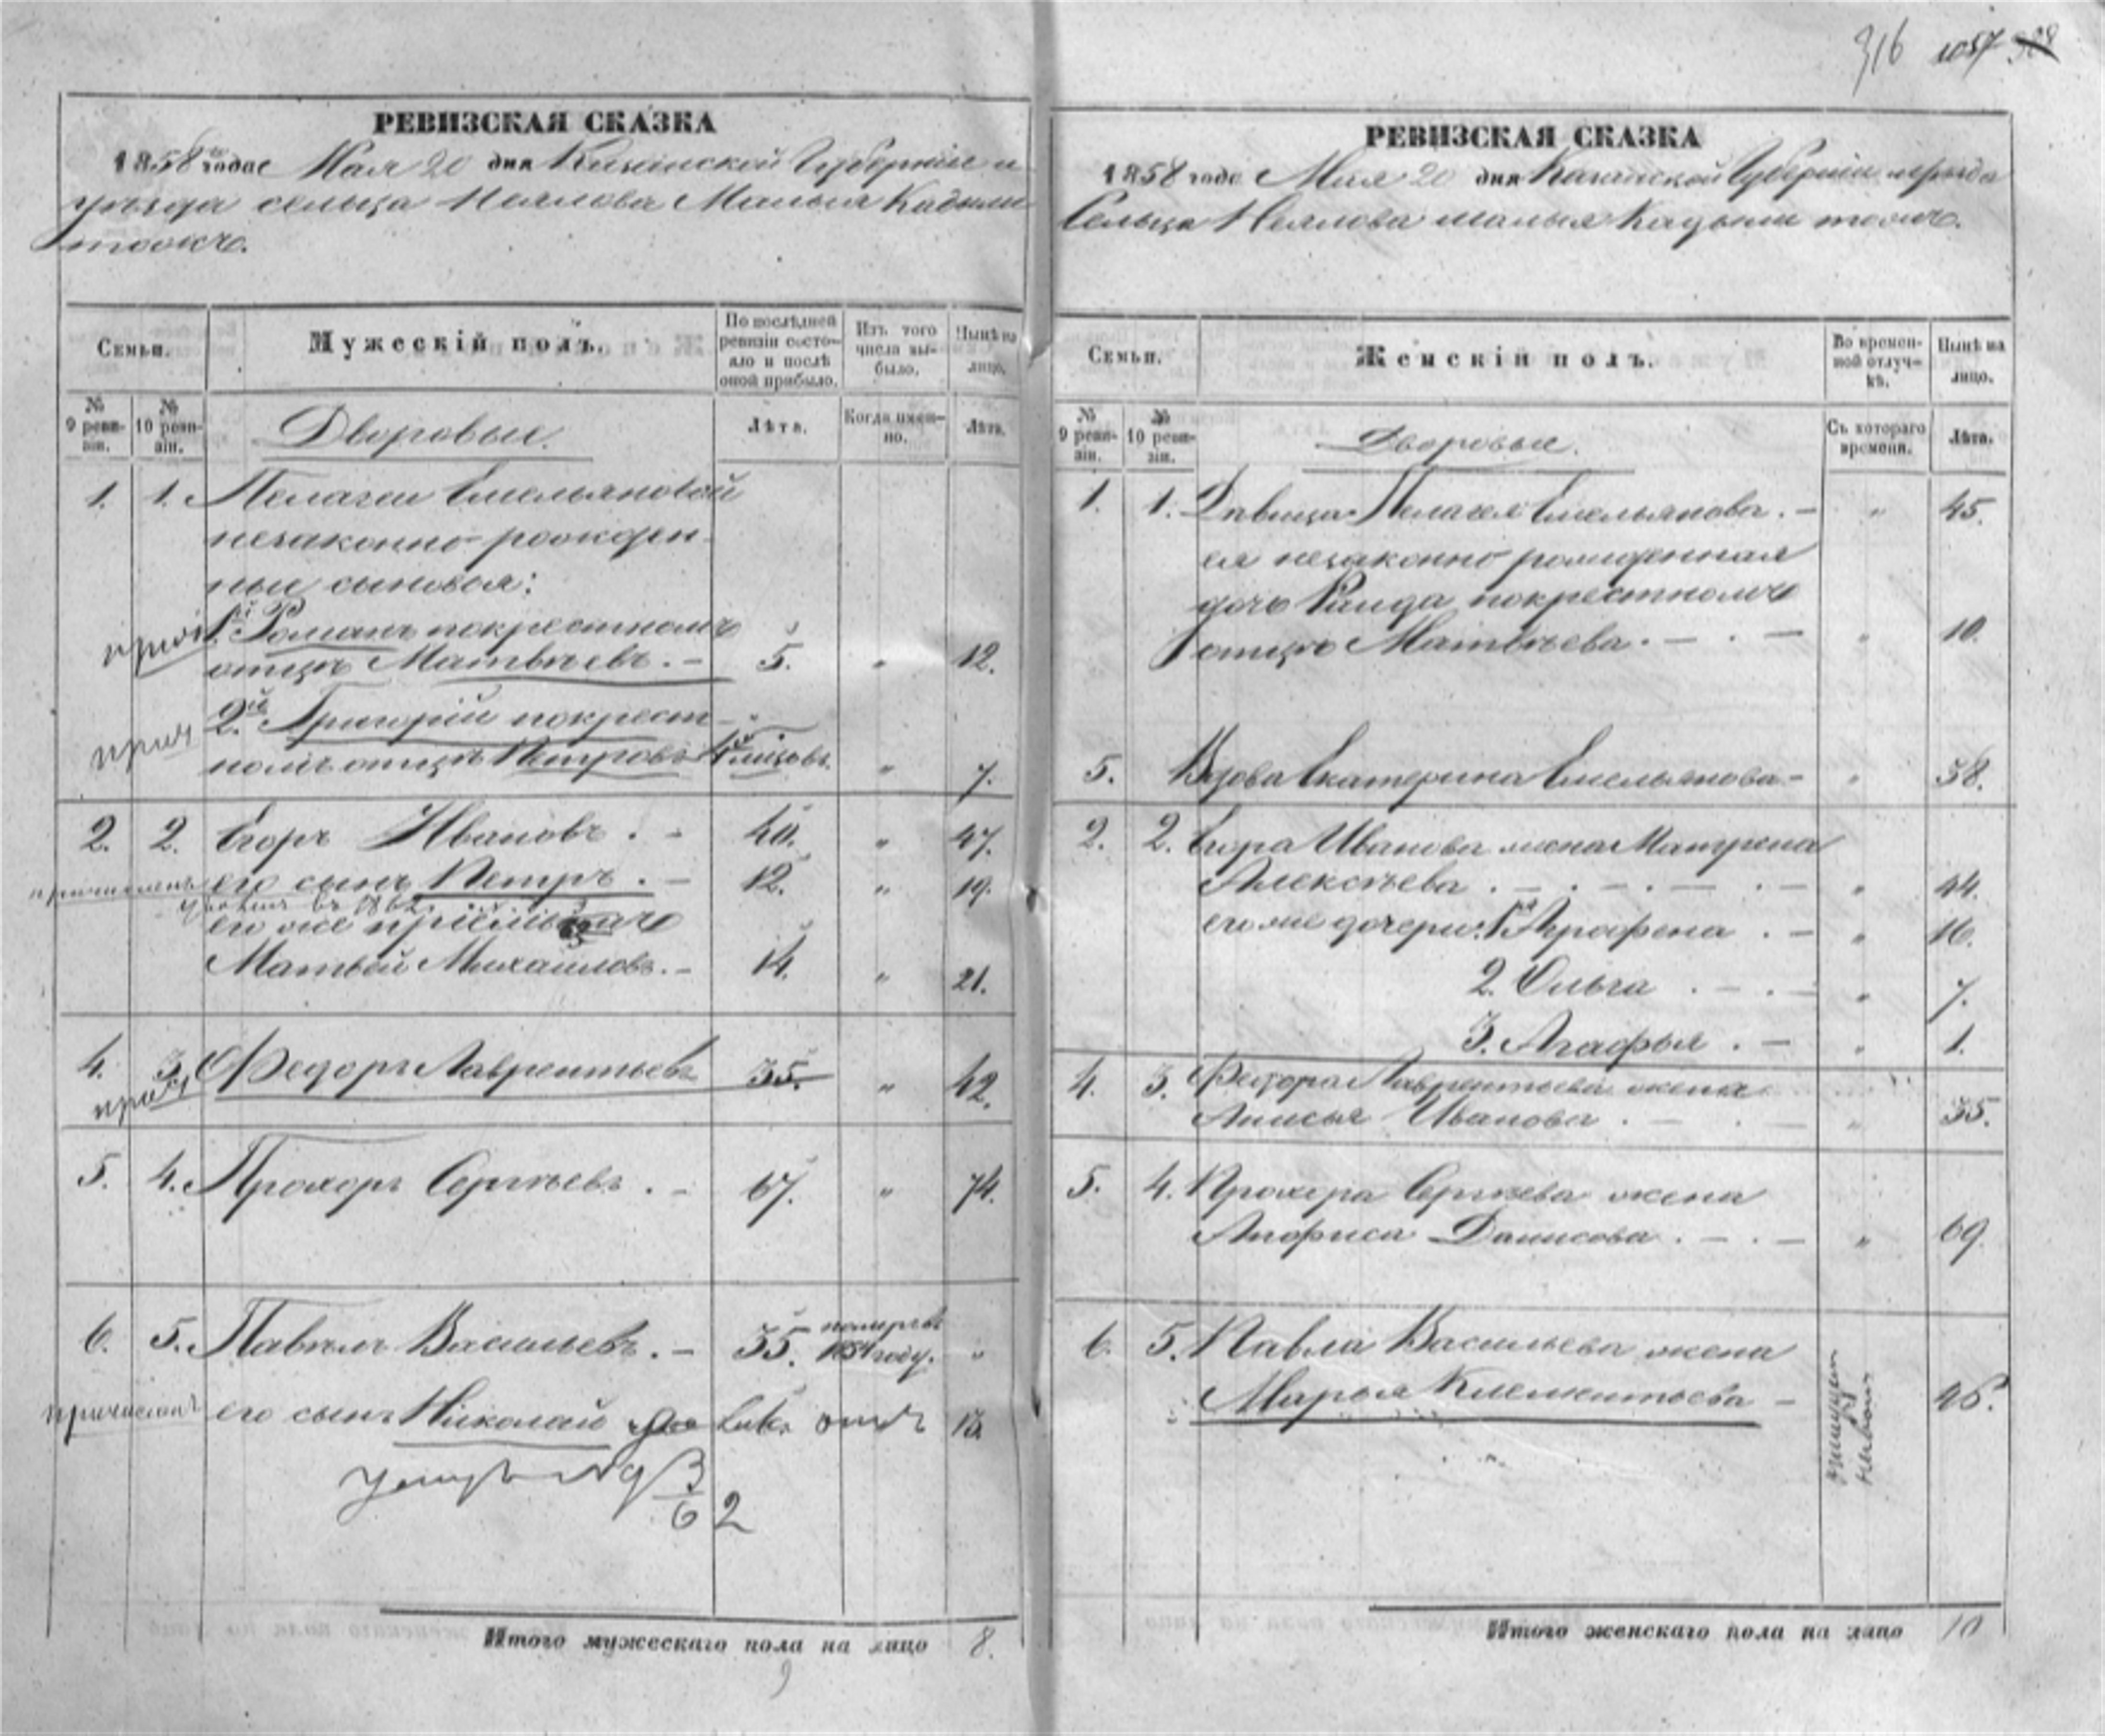 316 1057 328
РЕВИЗСКАЯ СКАЗКА
1858 года Мая 20 дня Казанской Губерніи и
уѣзда сельца Неялова Малыя Кадыши
тожъ.
Семьи.
Мужескій полъ.
По послѣдней ревизіи состояло и послѣ оной прибыло.
Изъ того числа выбыло.
Нынѣ на лицо.
№ 9 ревизіи.
№ 10 ревизіи.
Дворовые.
Лѣта.
Когда именно.
Лѣта.
1. 1. Пелагеи Емельяновой
незаконно рожден-
ные сыновья:
1й Романъ по крестному
отцу Матвѣевъ. – 5. „ 12.
2й Григорій по крест-
ному отцу Петровъ „ 7.
2. 2. Егоръ Ивановъ . – 40. „ 47.
причисленъ его сынъ Петръ . – 12. „ 19.
въ 1862
его же пріемышъ
Матвей Михайловъ. – 14. „ 21.
4. 3. Федоръ Лаврентьевъ 35. „ 42.
5. 4. Прохоръ Сергѣевъ . – 67. „ 74.
6. 5. Павелъ Васильевъ. – 35. померъ въ 1854 году. „
причисленъ его сынъ Николай 13.
3/62
Итого мужескаго пола на лицо 8.
9
РЕВИЗСКАЯ СКАЗКА
1858 года Мая 20 дня Казанской Губерніи и уѣзда
Сельца Неялова малыя Кадыши тожъ.
Семьи.
Женскій полъ.
Во временной отлучкѣ.
Нынѣ на лицо.
№ 9 ревизіи.
№ 10 ревизіи.
Дворовые.
Съ котораго времени.
Лѣта.
1. 1. Дѣвица Пелагея Емельянова. – „ 45.
ея незаконно рожденная
дочь Раида по крестному
отцу Матвѣева. – . – „ 10.
5. Вдова Екатерина Емельянова – „ 58.
2. 2. Егора Иванова жена Матрена
Алексѣева . – . – . – . – „ 44.
его же дочери: 1я Аграфена . – „ 16.
2. Ольга . – . – „ 7.
3. Агафья . – „ 1.
4. 3. Федора Лаврентьева жена
Анисья Иванова . – . – „ 35.
5. 4. Прохора Сергѣева жена
Анфиса Данисова . – . – „ 69.
6. 5. Павла Васильева жена
Марья Клементьева – 46.
Итого женскаго пола на лицо 10